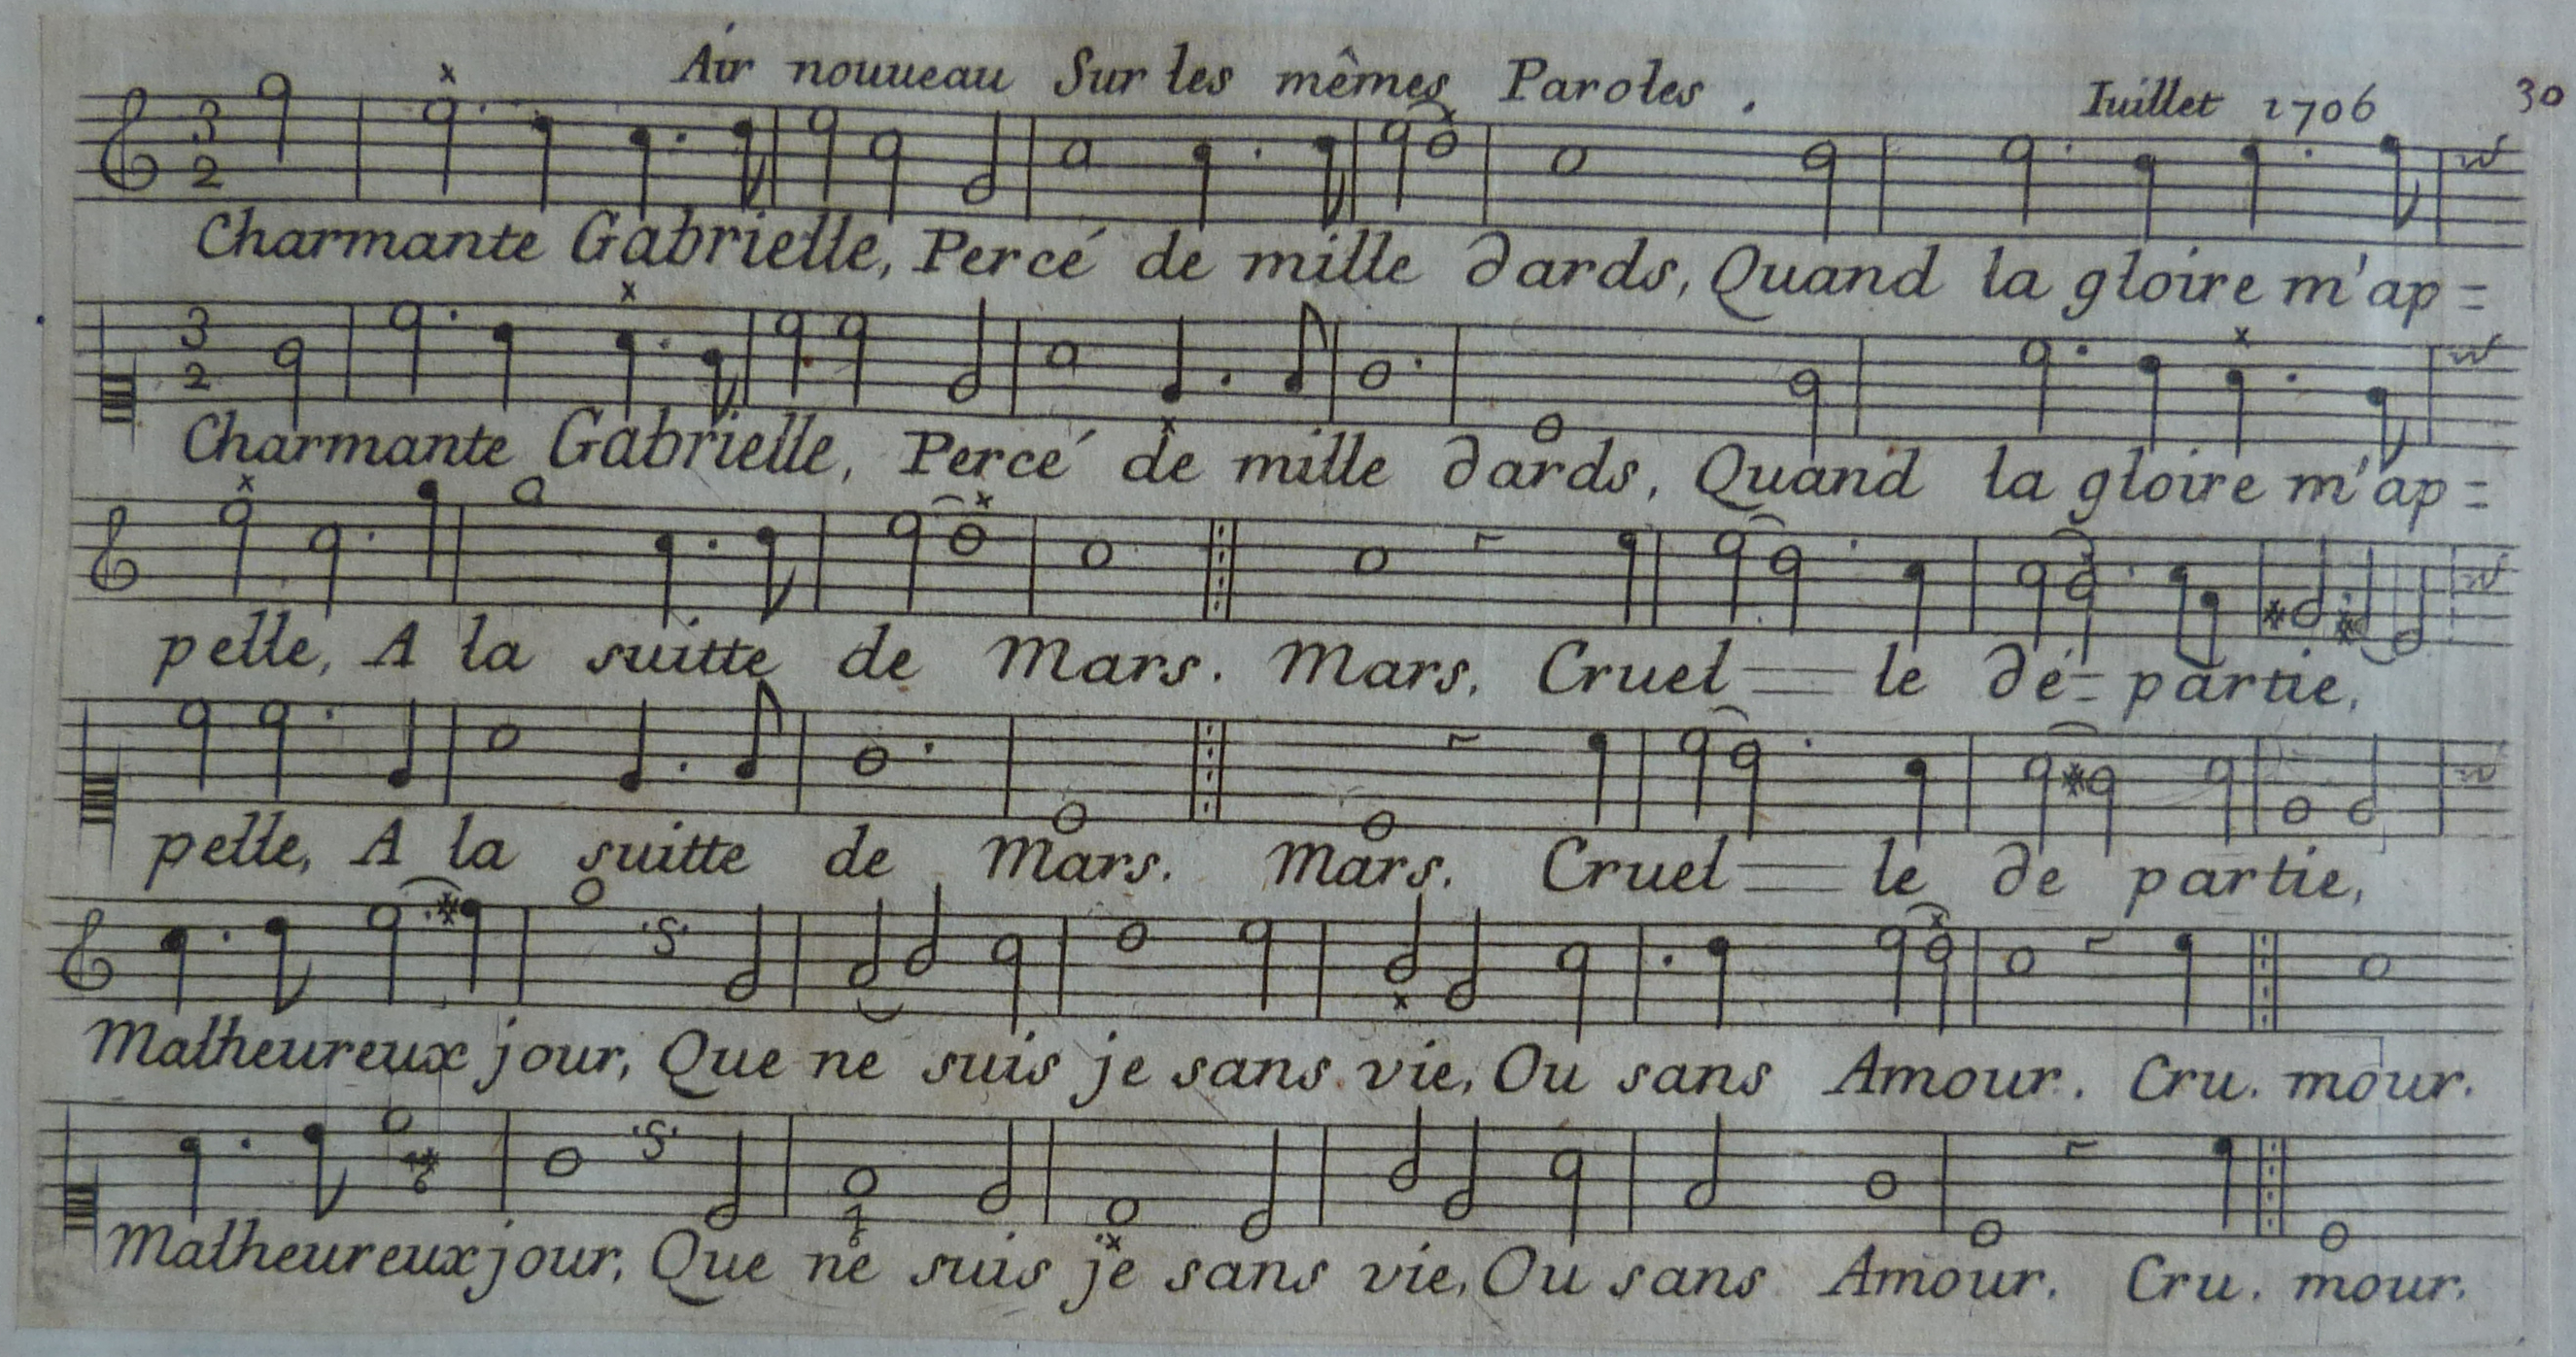 Air nouueau Sur les mêmes Paroles. Iuillet 1706 30
3 2
Charmante Gabrielle, Percé de mille dards, Quand la gloire m'ap=
3 2
Charmante Gabrielle, Percé de mille dards, Quand la gloire m'ap=
pelle, A la suitte de Mars. Mars. Cruel— le dé-partie,
pelle, A la suitte de Mars. Mars. Cruel— le de partie,
Malheureux jour, Que ne suis je sans vie, Ou sans Amour. Cru. mour.
Malheureux jour, Que ne suis je sans vie, Ou sans Amour. Cru. mour.